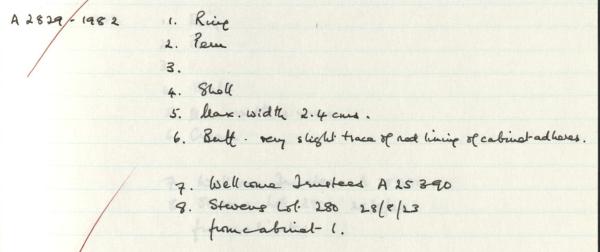 A 2829-1982 1. Ring
2. Peru
3.
4. Shell
5. Max. width 2.4 cms.
6. Buff. very slight trace of red lining of cabinet adheres.
7. Wellcome Trustees A 25390
8. Stevens Lot 280 28/8/23
from cabinet 1.